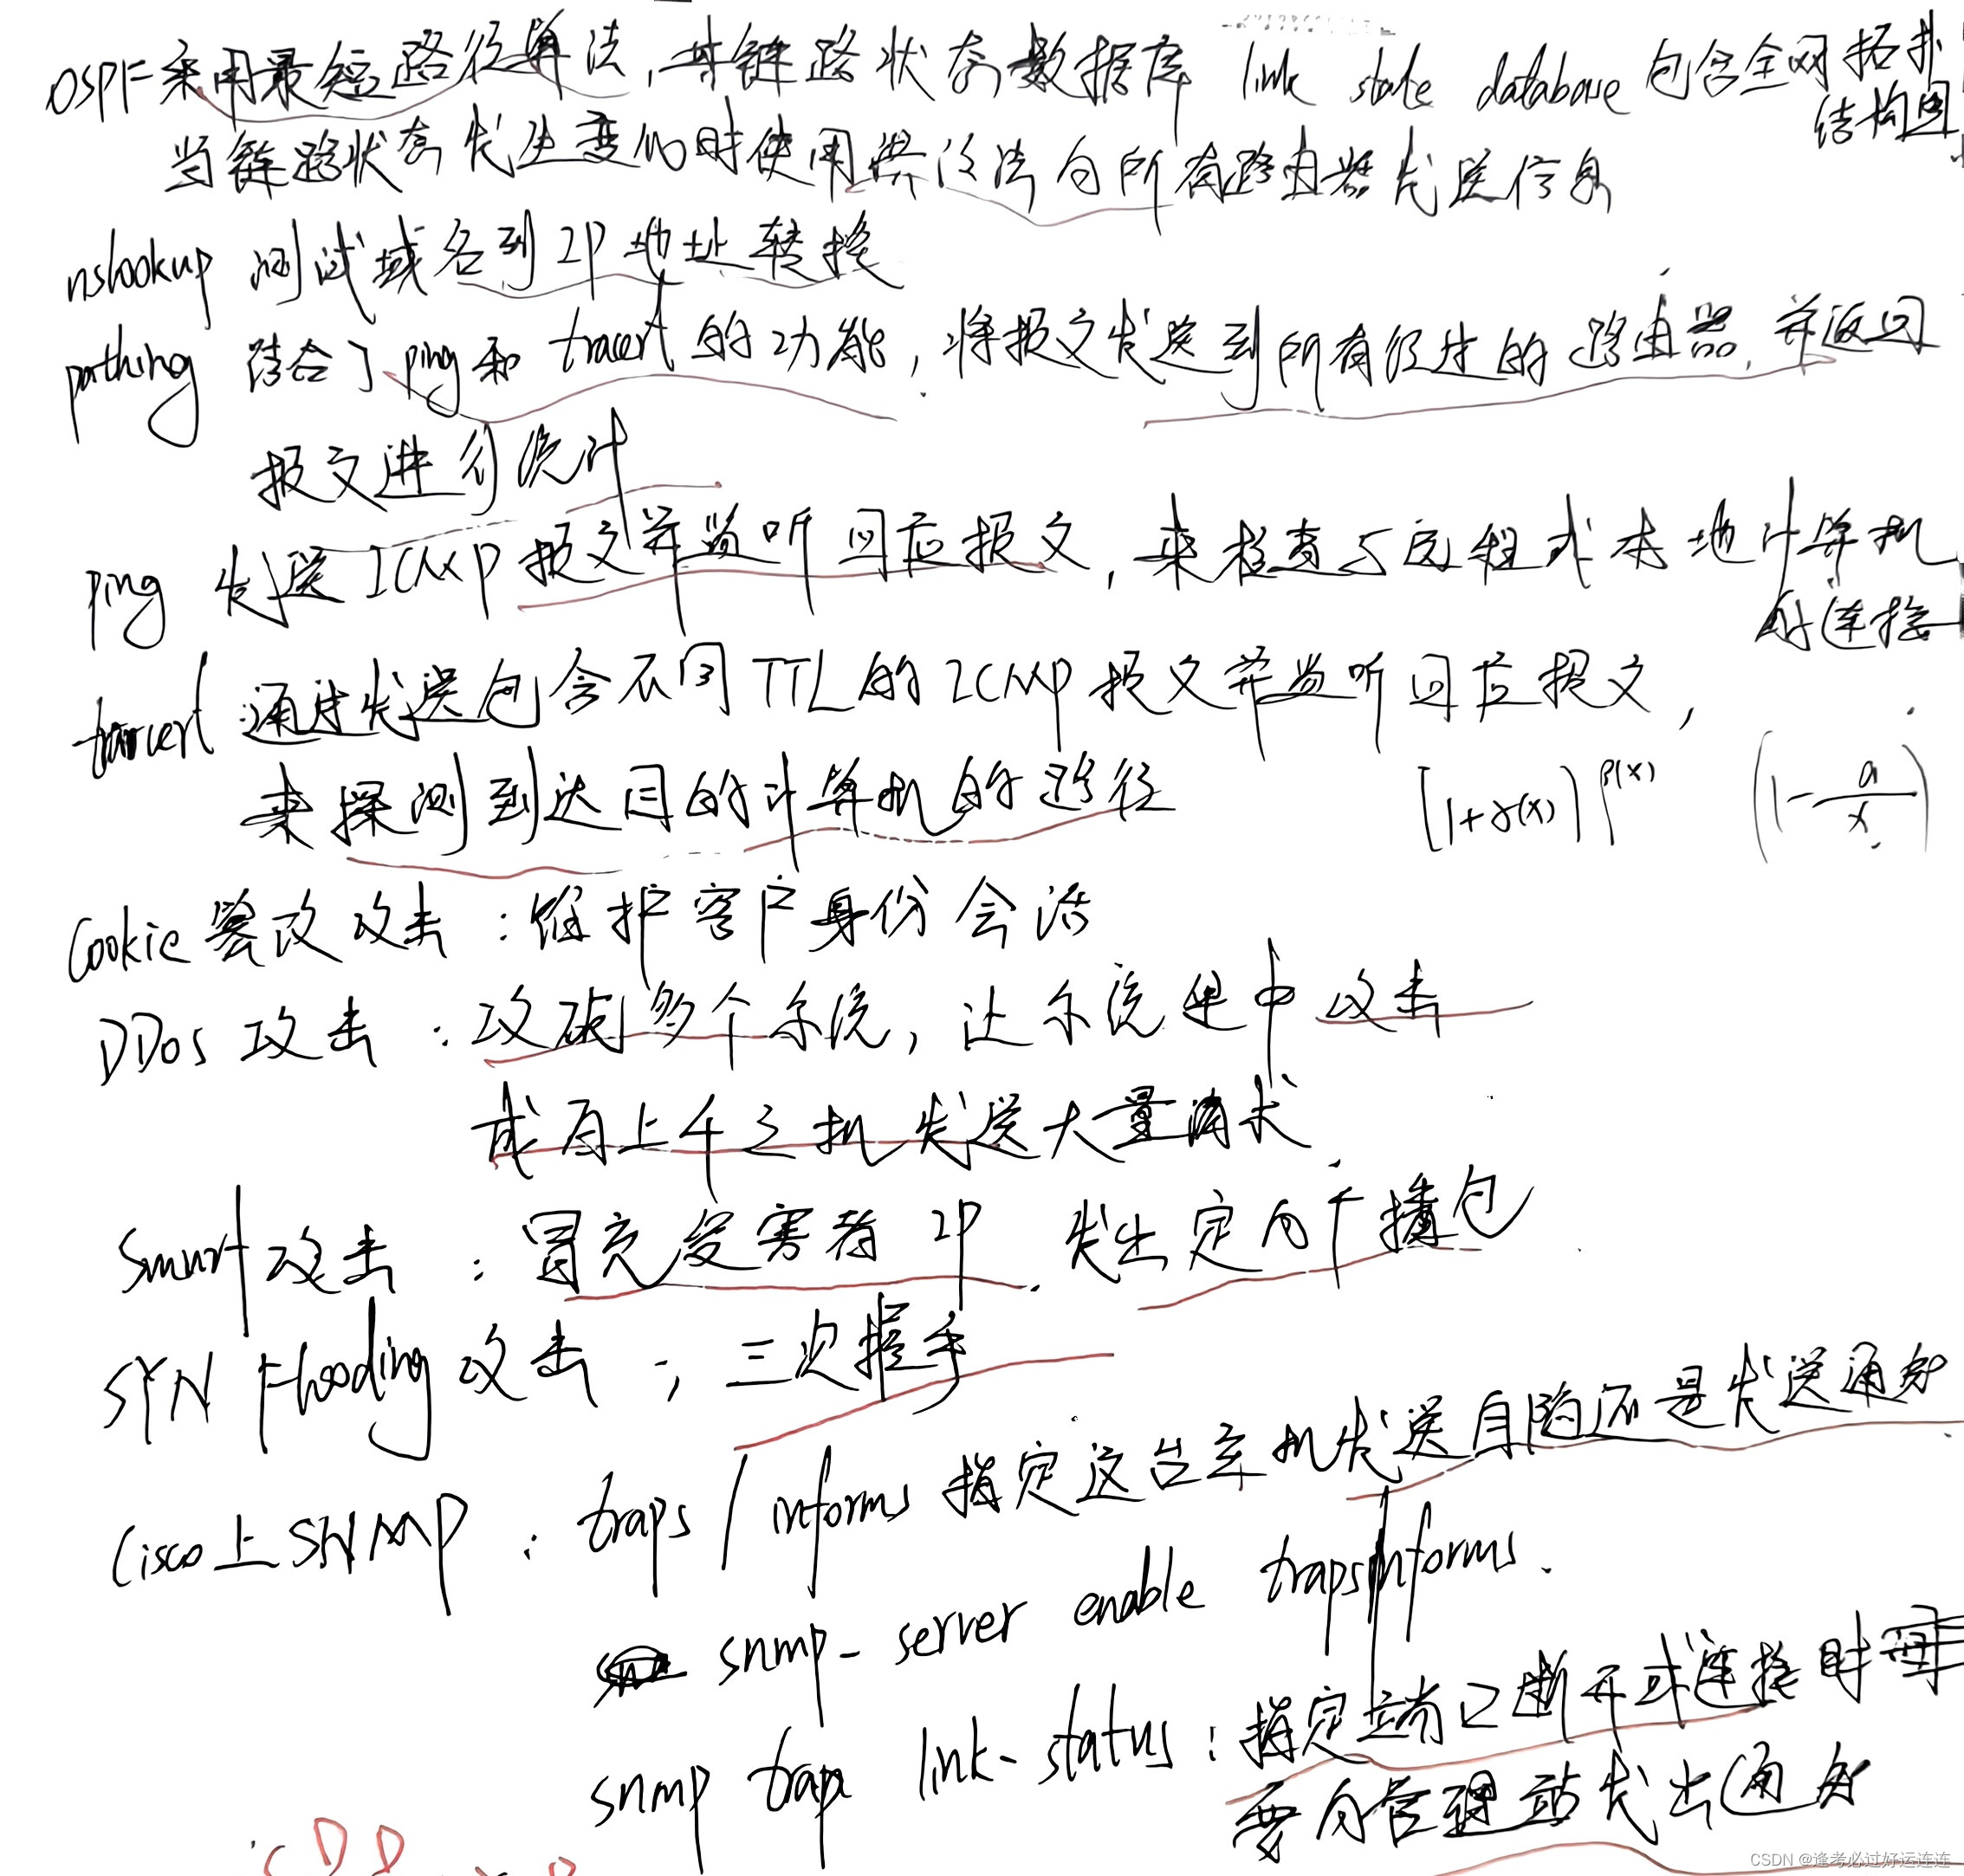 OSPF采用最短路径算法,其链路状态数据库 link state database 包含全网拓扑
结构图
当链路状态发生变化时使用洪泛法向所有路由器发送信息
nslookup 测试域名到IP地址转换
pathing 结合了ping和 tracert 的功能,将报文发送到所有经过的路由器,并返回
报文进行统计
ping 发送ICMP报文并监听回应报文,来检查与远程或本地计算机
的连接
tracert 通过发送包含不同TTL的ICMP报文并监听回应报文,
来探测到达目的计算机的路径
[1+α(x)]β(x) (1-a/x)
Cookie篡改攻击:维护客户身份会话
DDos攻击:攻破多个系统,让系统集中攻击
成百上千主机发送大量请求
Smurf攻击:冒充受害者IP.发出定向广播包
SYN Flooding攻击;三次握手
Cisco上SNMP:traps/informs指定这台主机发送自陷还是发送通知
snmp-server enable traps/informs.
snmp trap link-status:指定端口断开或连接时
要向管理站发出通知
CSDN @逢考必过好运连连